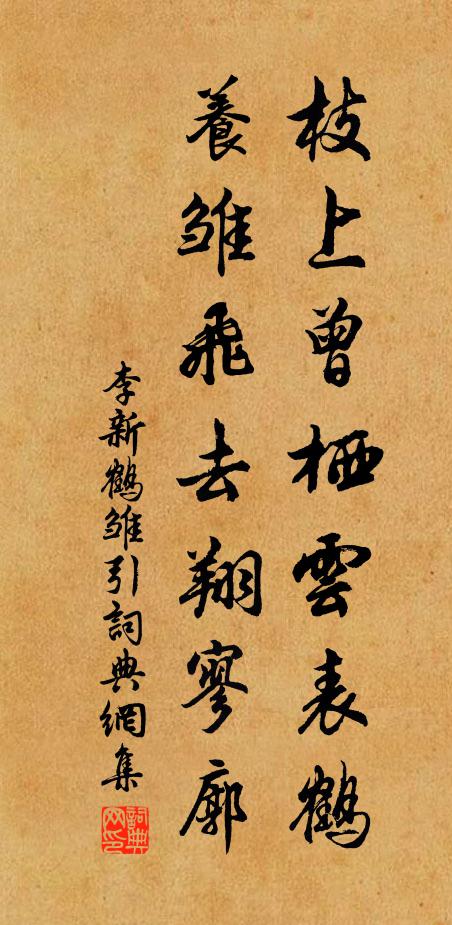 枝上曾栖雲表鶴
養雛飛去翔寥廓
李新鶴雛引詞典網集
詞典
网印